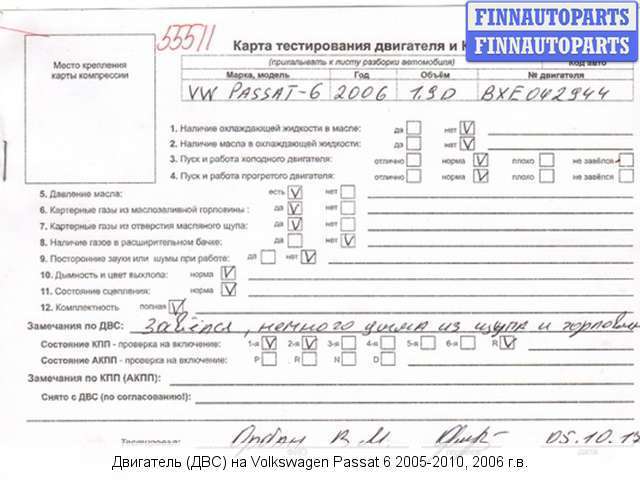 FINNAUTOPARTS
FINNAUTOPARTS
55511
Место крепления
карты компрессии
Карта тестирования двигателя и К
(прикалывать к листу разборки автомобиля) Код авто
Марка, модель Год Объём № двигателя
VW PASSAT-6 2006 1.9D BXE042944
1. Наличие охлаждающей жидкости в масле: да нет V
2. Наличие масла в охлаждающей жидкости: да нет V
3. Пуск и работа холодного двигателя: отлично норма V плохо не завёлся
4. Пуск и работа прогретого двигателя: отлично норма V плохо не завёлся
5. Давление масла: есть V нет
6. Картерные газы из маслозаливной горловины : да V нет
7. Картерные газы из отверстия масляного щупа: да V нет
8. Наличие газов в расширительном бачке: да нет V
9. Посторонние звуки или шумы при работе: да нет V
10. Дымность и цвет выхлопа: норма V
11. Состояние сцепления: норма V
12. Комплектность полная V
Замечания по ДВС: Завёлся, немного дыма из щупа и горловины
Состояние КПП - проверка на включение: 1-я V 2-я V 3-я 4-я 5-я 6-я R V
Состояние АКПП - проверка на включение: P R N D
Замечания по КПП (АКПП):
Снято с ДВС (по согласованию!):
Тестировал: В.М. 05.10.13
Двигатель (ДВС) на Volkswagen Passat 6 2005-2010, 2006 г.в.